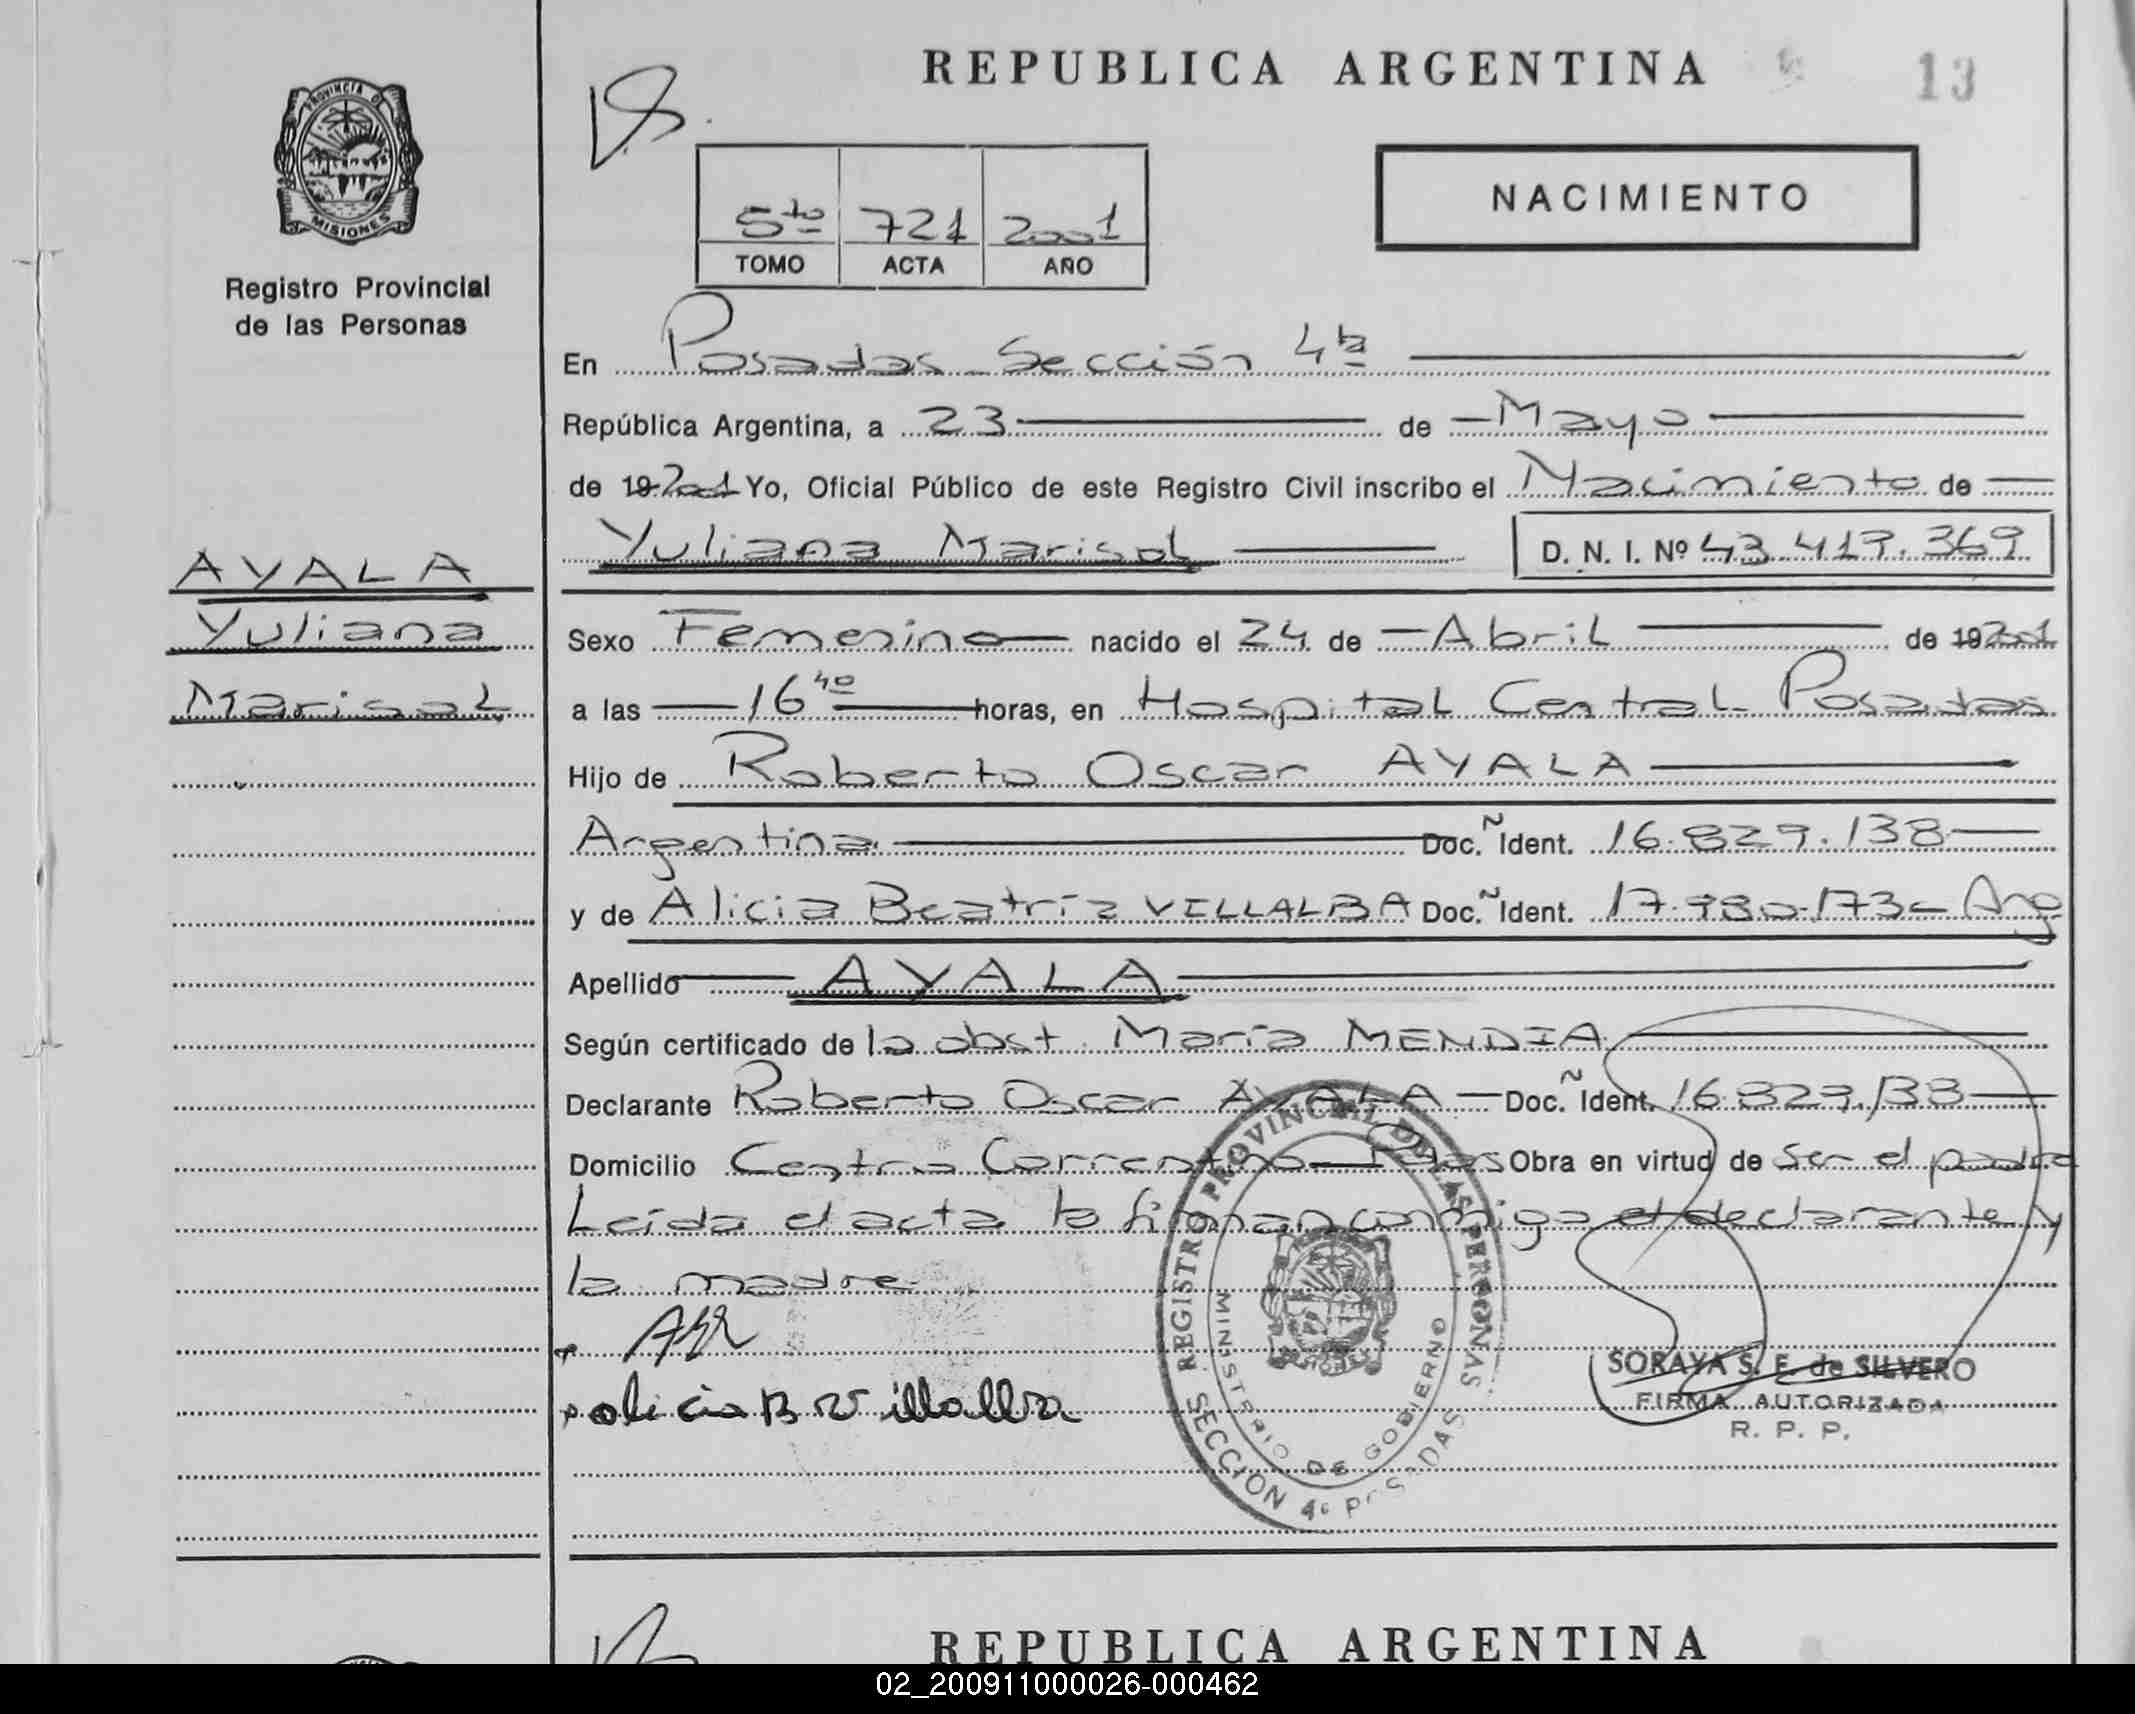 REPUBLICA ARGENTINA
13
PROVINCIA DE
MISIONES
Registro Provincial
de las Personas
5to 721 2001
TOMO ACTA AÑO
NACIMIENTO
En Posadas - Sección 4ta
República Argentina, a 23 de Mayo
de 19 2001 Yo, Oficial Público de este Registro Civil inscribo el Nacimiento de
Yuliana Marisol D. N. I. Nº 43.417.369
AYALA
Yuliana
Marisol
Sexo Femenino nacido el 24 de Abril de 19 2001
a las 16 40 horas, en Hospital Central Posadas
Hijo de Roberto Oscar AYALA
Argentina Doc. Ñ Ident. 16.829.138
y de Alicia Beatríz VILLALBA Doc. Ñ Ident. 17.980.173 - Arg
Apellido AYALA
Según certificado de la obst. María MENDIA
Declarante Roberto Oscar AYALA Doc. Ñ Ident. 16.829.138
Domicilio Centro Correntino - Pdas Obra en virtud de ser el padre
Leída el acta la firman conmigo el declarante y
la madre
REGISTRO PROVINCIAL DE LAS PERSONAS
MINISTERIO DE GOBIERNO
SECCION 4a POSADAS
alicia B Villalba
SORAYA S. E. de SILVERO
FIRMA AUTORIZADA
R. P. P.
REPUBLICA ARGENTINA
02_200911000026-000462